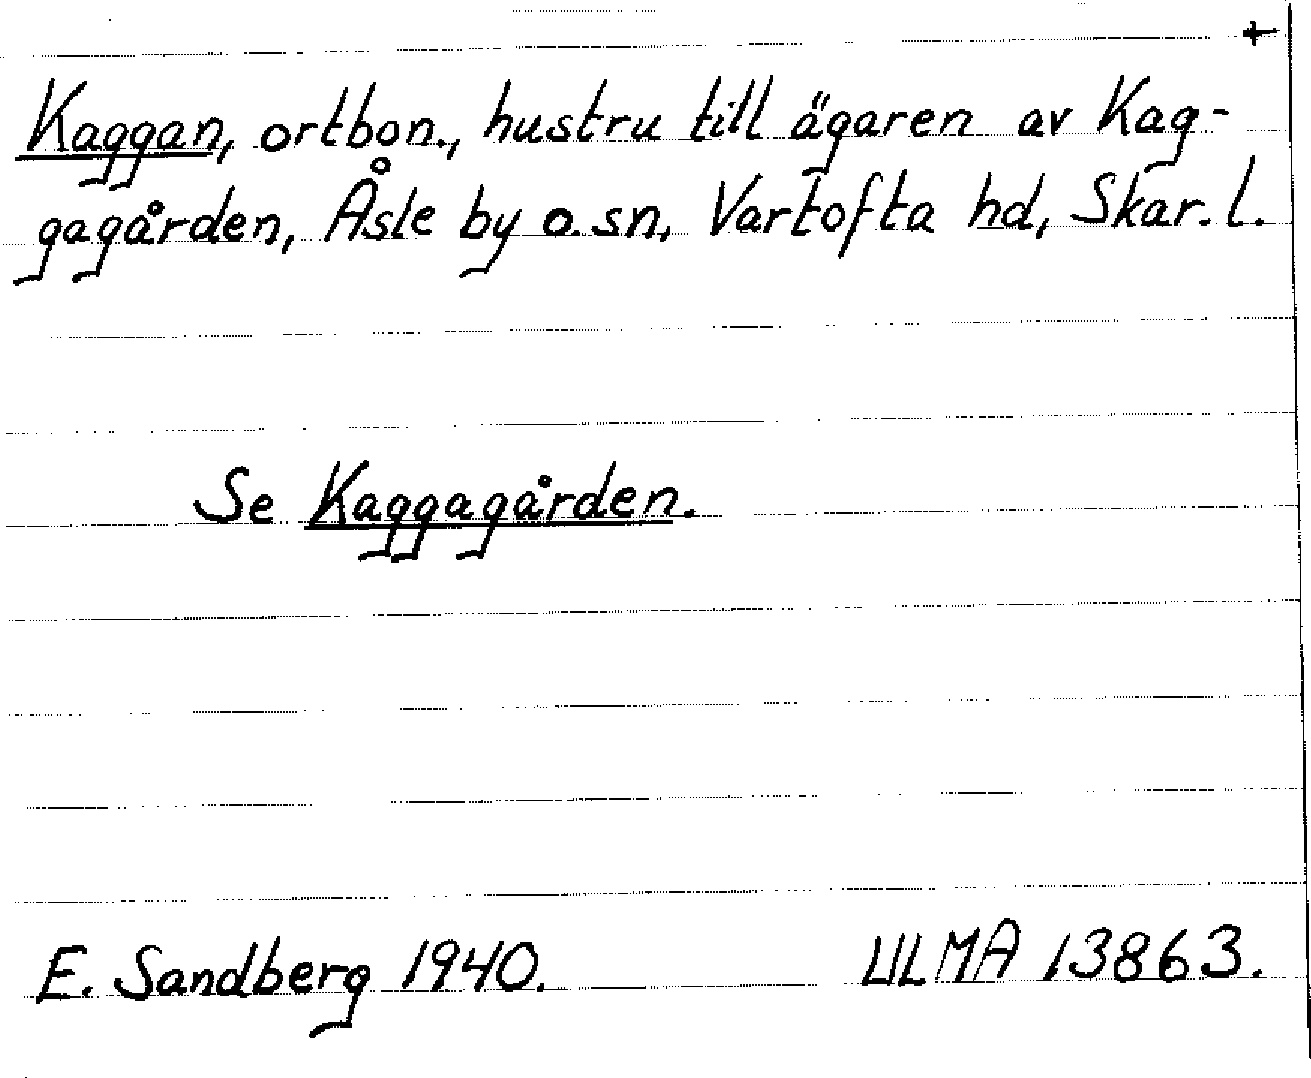 +
Kaggan, ortbon., hustru till ägaren av Kag-
gagården, Åsle by o. sn, Vartofta hd, Skar. l.
Se Kaggagården.
E. Sandberg 1940. ULMA 13863.